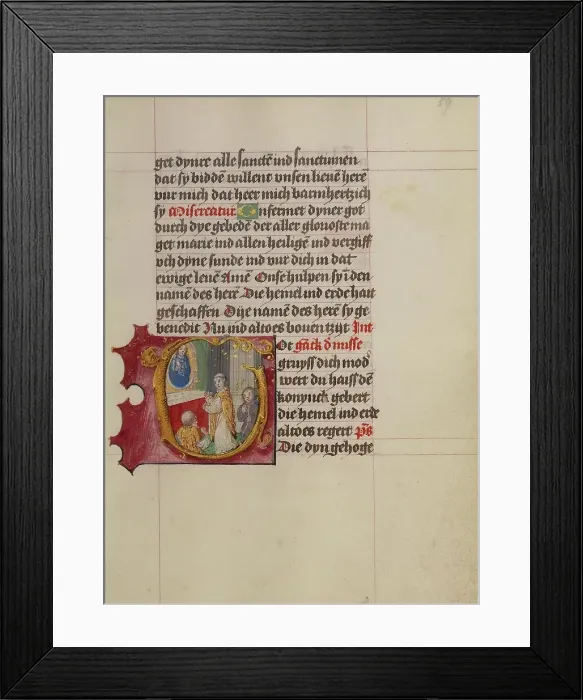 59
get dynre alle sanctē ind sanctinnen
dat sy biddē willent vnsen lieuē herē
vur mich dat heer mich barmhertzich
sy Misereatur Gnfermet dyner got
durch dye gebedē der aller glorioste ma
get marie ind allen heiligē ind vergiff
vch dyne sunde ind vur dich in dat
ewige leuē Amē Onse hulpen sy ī den
namē des herē Die hemel ind erde hait
geschaffen Die namē des herē sy ge
benedit Nu ind altoes bouen tzijt Int
Ot gāck d misse
gruyss dich mod
wert du haiss dē
konynck gebert
die hemel ind erde
altoes regert ps
Die dyn gehoge